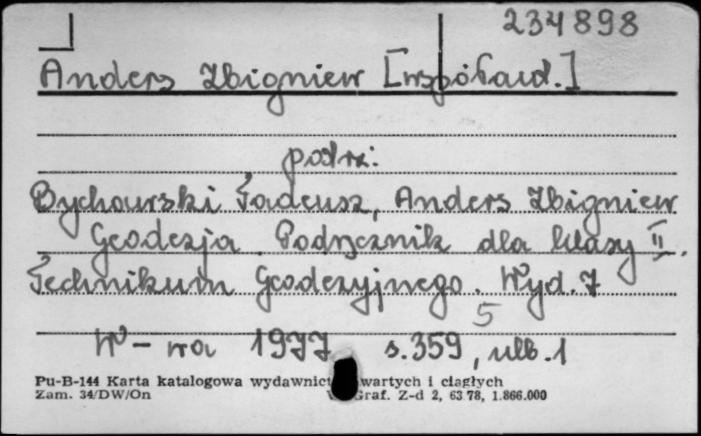 234898
Anders Zbigniew [współaut.]
patrz:
Bychowski Tadeusz, Anders Zbigniew
Geodezja. Podręcznik dla klasy II.
Technikum Geodezyjnego. Wyd. 7
5
W-wa 1977 s.359, nlb.1
Pu-B-144 Karta katalogowa wydawnict wartych i ciągłych
Zam. 34/DW/On Graf. Z-d 2, 63 78, 1.866.000